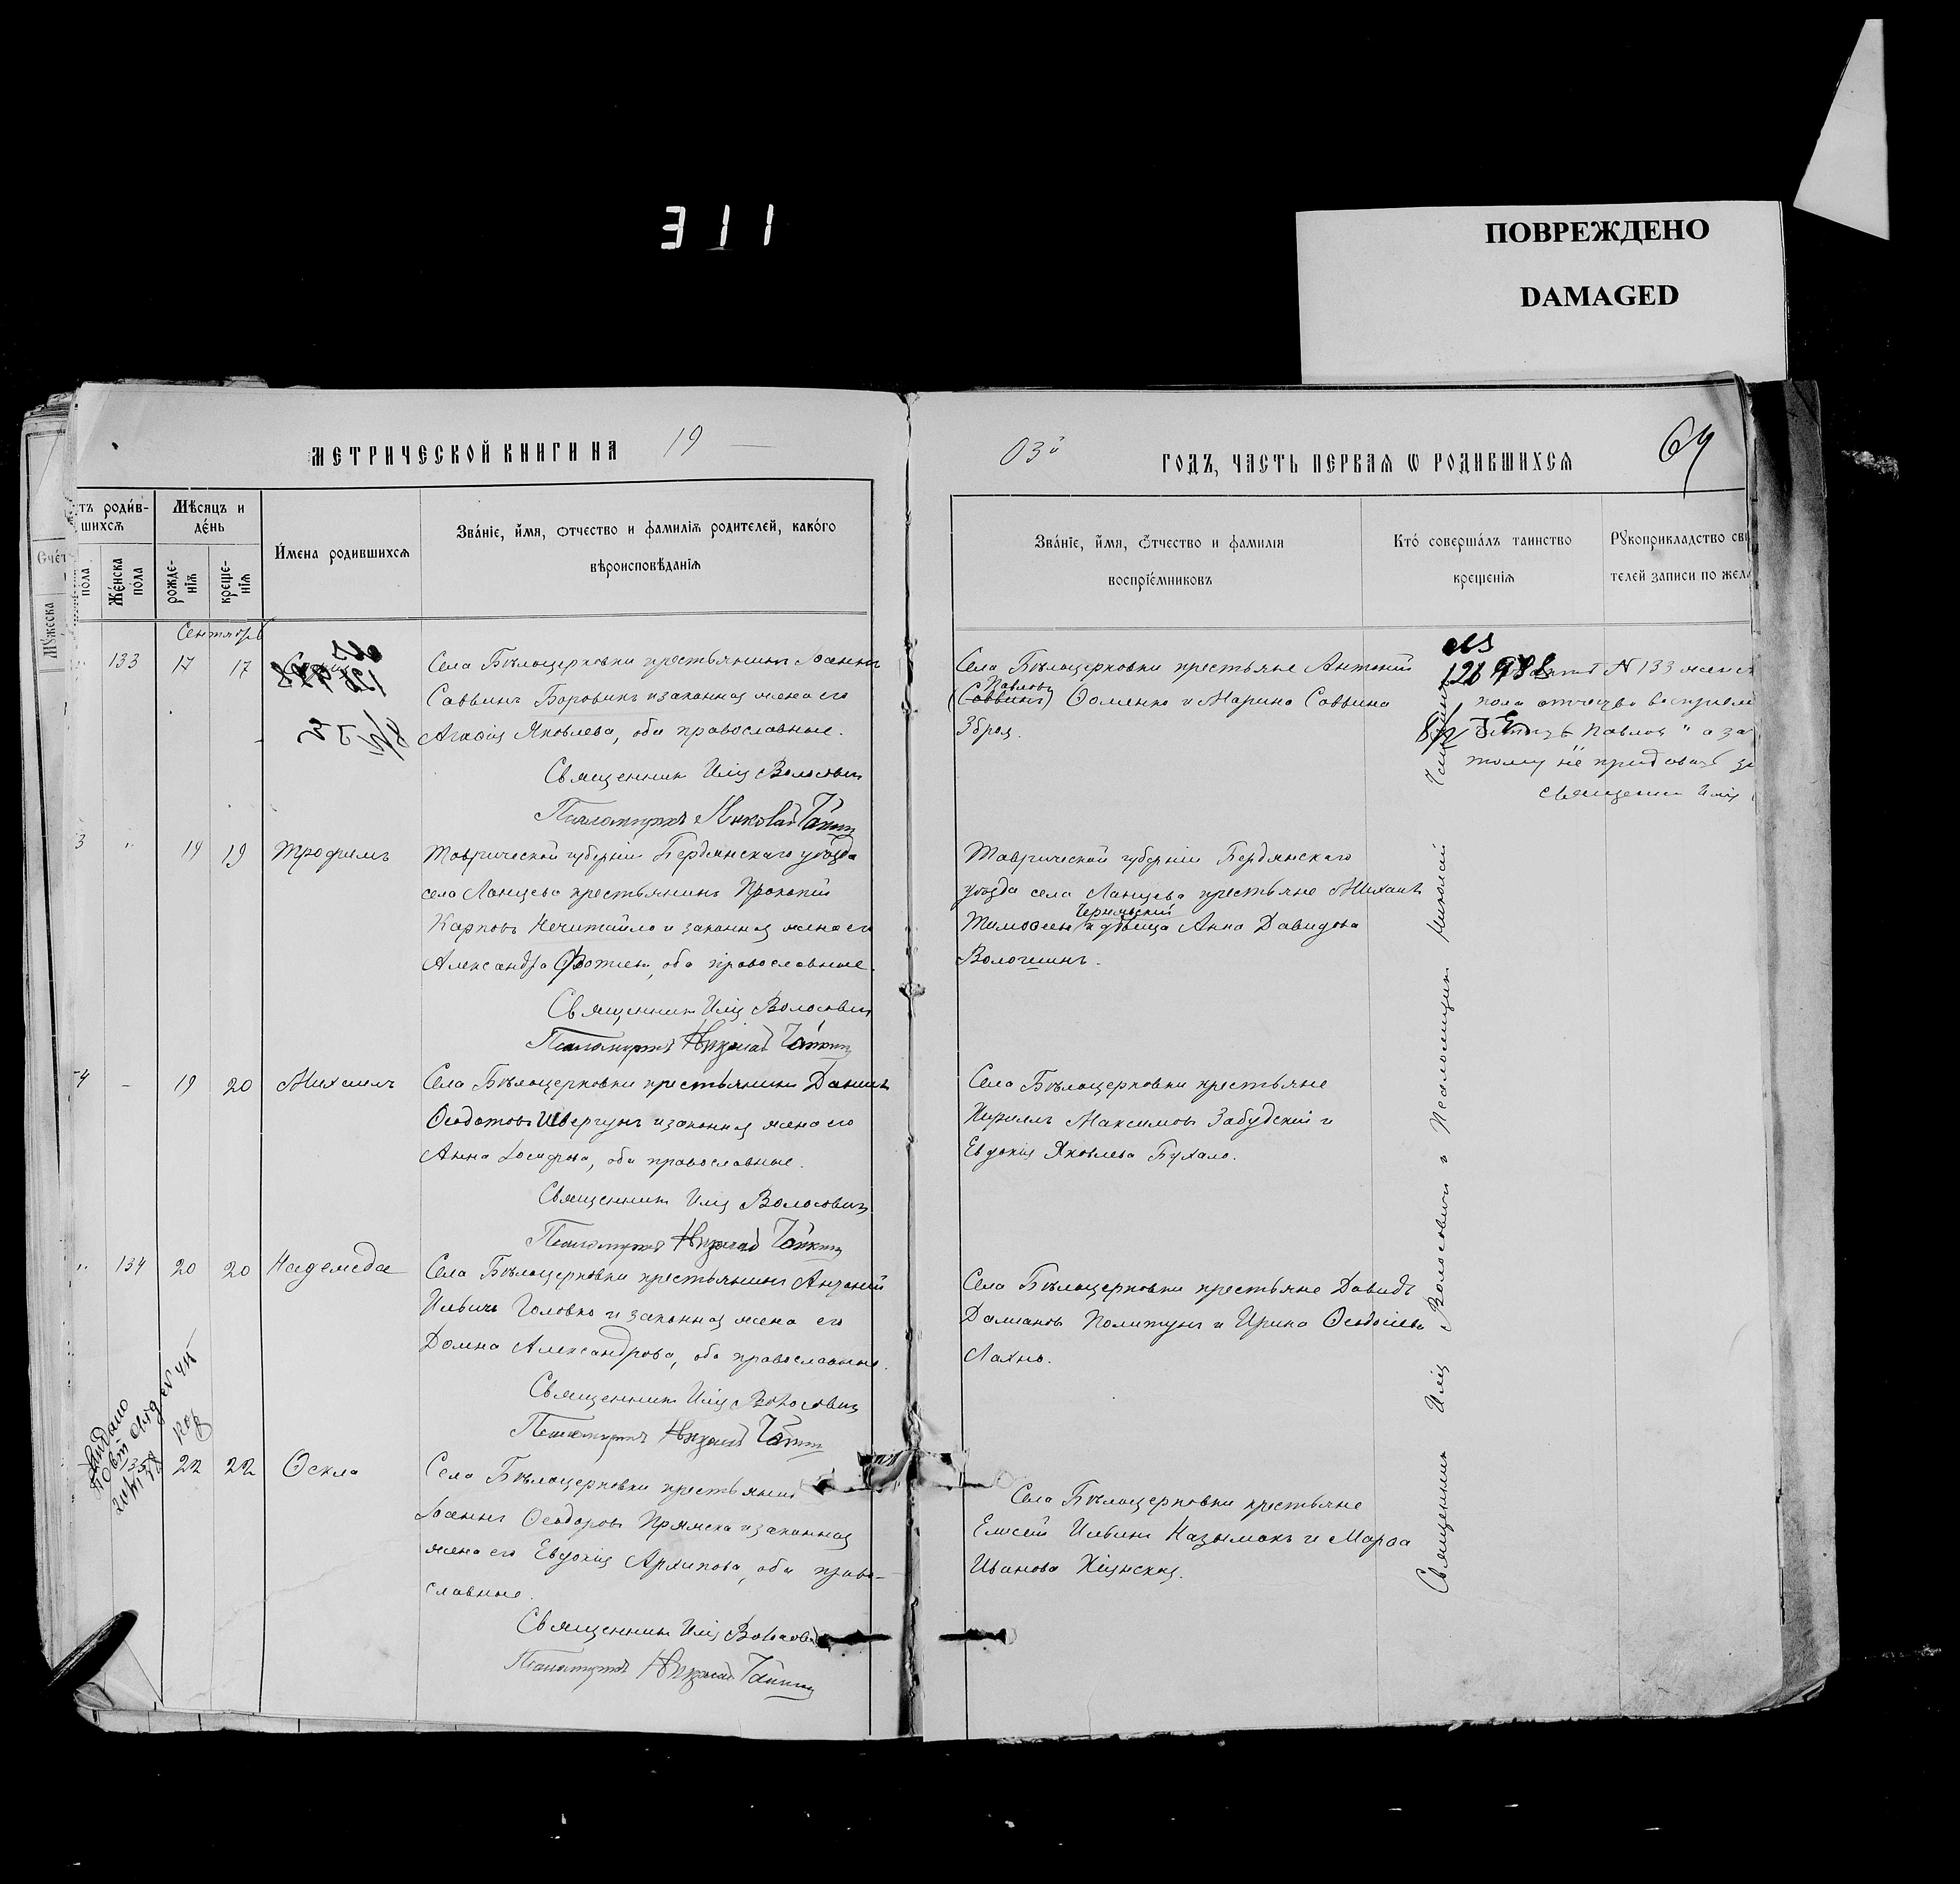 311
ПОВРЕЖДЕНО
DAMAGED
МЕТРИЧЕСКОЙ КНИГИ НА 19
03й ГОДЪ, ЧАСТЬ ПЕРВАЯ Ѡ РОДИВШИХСЯ
64
Счет
Мꙋжеска
тъ роди́в-
шихсѧ
пола
Же́нска
по́ла
Мѣсяцъ и
де́нь
рожде-
нїѧ
креще-
нїѧ
И́мена родившихсѧ
Зва́нїе, и́мя, ѻтчество и фамилїѧ родителей, како́го
вѣроисповѣ́данїѧ
Зва́нїе, и́мя, ѻ́тчество и фамилїѧ
воспрїе́мниковъ
Кто́ соверша́лъ таинство
крещенїѧ
Рꙋкоприкладство сви
телей записи по жела
Сентябрь
133 17 17
Села Бѣлоцерковки крестьянинъ Іоаннъ
Саввинъ Боровикъ и законная жена его
Агаѳія Яковлева, оба православные.
Священникъ Илія Волосович
Псаломщикъ Николай
Села Бѣлоцерковки крестьяне Антоній
Павловъ
(Саввинъ) Ѳоменко и Марина Саввина
Зброя.
126 988
N 133 женск
пола отчество воспріем
Павлов " а за
тому не придавать
священник Илія
3 " 19 19 Трофимъ
Таврической губерніи Бердянскаго уѣзда
села Ланцева крестьянинъ Прокопій
Карповъ Нечитайло и законная жена его
Александра Фотіева, оба православные.
Священникъ Илія Волосович
Псаломщикъ Николай
Таврической губерніи Бердянскаго
уѣзда села Ланцева крестьяне Михаилъ
Тимоѳеевъ и дѣвица Анна Давидова
Волошинъ.
54 - 19 20 Михаилъ
Села Бѣлоцерковки крестьянинъ Даніилъ
Ѳеодотовъ Швергунъ и законная жена его
Анна Іосифова, оба православные.
Священникъ Илія Волосович
Псаломщикъ Николай
Села Бѣлоцерковки крестьяне
Кириллъ Максимовъ Забудскій и
Евдокія Яковлева Бухало.
" 134 20 20 Надежда
Села Бѣлоцерковки крестьянинъ Антоній
Ильичъ Головко и законная жена его
Домна Александрова, оба православные.
Священникъ Илія Волосович
Псаломщикъ Николай
Села Бѣлоцерковки крестьяне Давидъ
Даміановъ Политунъ и Ирина Ѳеодосіева
Лахно.
135 22 22 Ѳекла
Села Бѣлоцерковки крестьянинъ
Іоаннъ Ѳеодоровъ Прямека и законная
жена его Евдокія Архипова, оба право-
славные.
Священникъ Илія Волосови
Псаломщикъ Николай
Села Бѣлоцерковки крестьяне
Елисей Ильинъ Казымакъ и Марѳа
Иванова
Священникъ Илія Волосовичъ и Псаломщикъ Николай